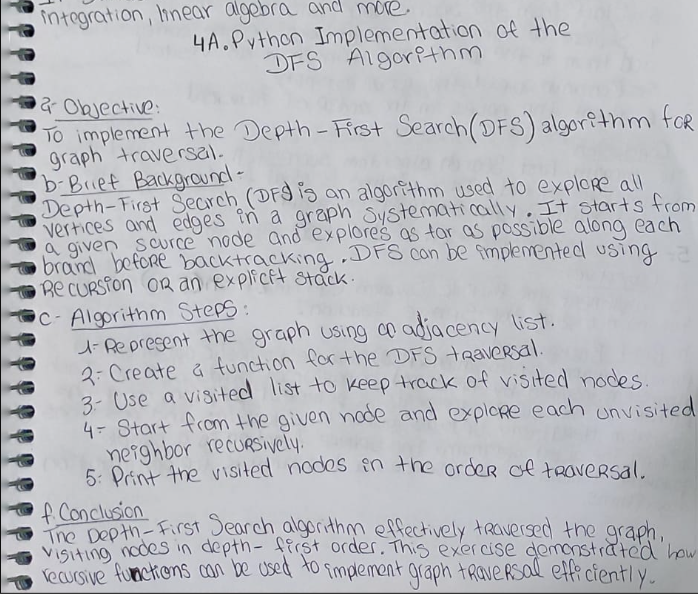 integration, linear algebra and more.
4A. Python Implementation of the
DFS Algorithm
a- Objective:
To implement the Depth-First Search (DFS) algorithm for
graph traversal.
b- Brief Background-
Depth-First Search (DFS) is an algorithm used to explore all
vertices and edges in a graph systematically. It starts from
a given source node and explores as far as possible along each
brand before backtracking. DFS can be implemented using
Recursion or an explicit stack.
c- Algorithm Steps:
1- Represent the graph using an adjacency list.
2- Create a function for the DFS traversal.
3- Use a visited list to keep track of visited nodes.
4- Start from the given node and explore each unvisited
neighbor recursively.
5- Print the visited nodes in the order of traversal.
f. Conclusion
The Depth-First Search algorithm effectively traversed the graph,
visiting nodes in depth-first order. This exercise demonstrated how
recursive functions can be used to implement graph traversal efficiently.